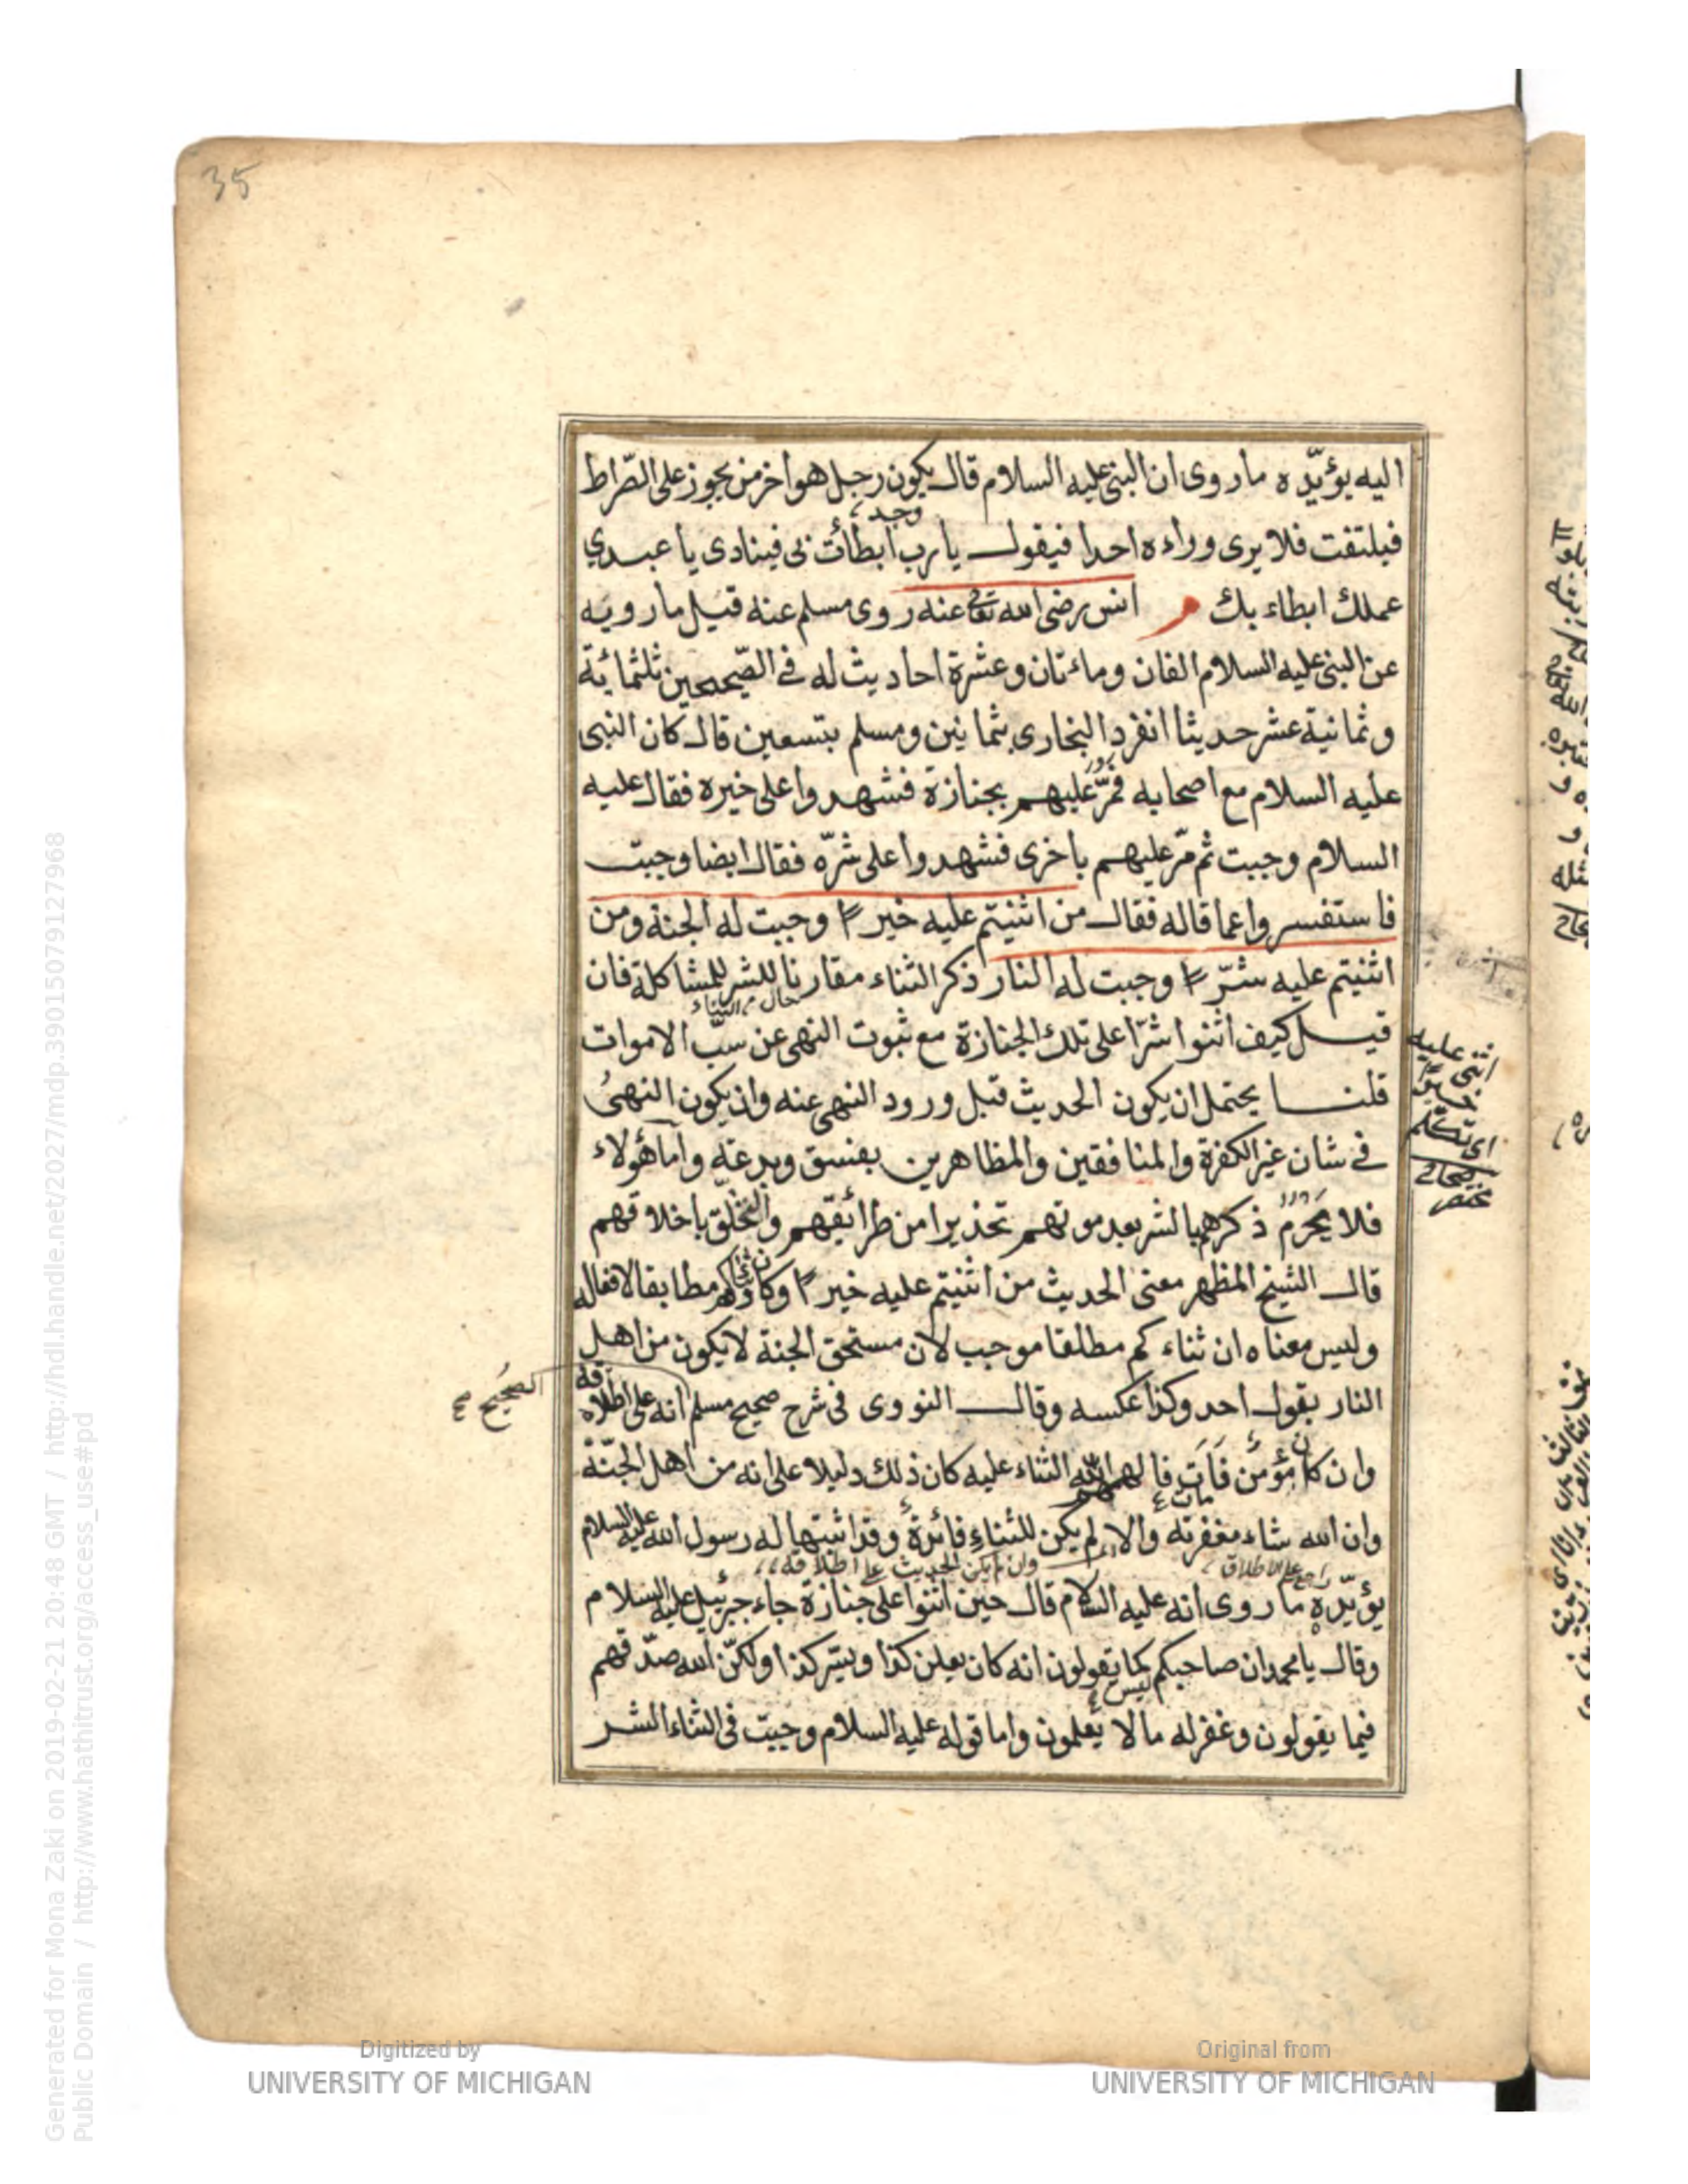 35
اليه يؤيّده ماروى ان النبى عليه السلام قال يكون رجل هو اخر من يجوز على الصّراط
فيلتفت فلا يرى وراءه احدا فيقول يا رب ابطأت بى فينادى يا عبدي
عملك ابطاء بك م انس رضى الله تعالى عنه روى مسلم عنه قيل مارويه
عن النبى عليه السلام الفان ومائتان وعشرة احاديث له فى الصّحيحين ثلثمائة
وثمانية عشر حديثا انفرد البخارى بثمانين ومسلم بتسعين قال كان النبى
عليه السلام مع اصحابه فمرّ عليهم بجنازة فشهدوا على خيره فقال عليه
السلام وجبت ثم مرّ عليهم باخرى فشهدوا على شرّه فقال ايضا وجبت
فاستفسروا عما قاله فقال من اثنيتم عليه خيرا وجبت له الجنة ومن
اثنيتم عليه شرّا وجبت له النار ذكر الثناء مقارنا للشر للمشاكلة فان
حال من الثناء
قيل كيف اثنوا شرّا على تلك الجنازة مع ثبوت النهى عن سبّ الاموات
قلنا يحتمل ان يكون الحديث قبل ورود النهى عنه وان يكون النهىُ
فى شان غير الكفرة والمنافقين والمظاهرين بفسق وبدعة واما هؤلاء
فلا يَحرمُ ذكرهم بالشر بعد موتهم تحذيرا من طرائقهم والتخلّق باخلاقهم
قال الشيخ المظهر معنى الحديث من اثنيتم عليه خيرا وكان ثناؤكم مطابقا لافعاله
وليس معناه ان ثناءكم مطلقا موجب لان مستحق الجنة لا يكون من اهل
النار بقول احد وكذا عكسه وقال النووى فى شرح صحيح مسلم انه على اطلاقه
الصحيح
وان كل مؤمن مَاتَ فالهم الله الثناء عليه كان ذلك دليلا على انه من اهل الجنّة
وان الله شاء مغفرته والا لم يكن للثناءِ فائدة وقد اثبتها له رسول الله عليه السلام
راجع على الاطلاق وان لم يكن الحديث على اطلاقه
يؤيّده ما روى انه عليه السلام قال حين اثنوا على جنازة جاء جبرئيل عليه السلام
وقال يا محمد ان صاحبكم كما يقولون انه كان يعلن كذا ويسّر كذا ولكنّ الله صدّقهم
ليس
فيما يقولون وغفر له مالا يعلمون واما قوله عليه السلام وجبت فى الثناء الشر
اثنى عليه
خيرا
اى تكلم
صحاح
مختصر
Generated for Mona Zaki on 2019-02-21 20:48 GMT / http://hdl.handle.net/2027/mdp.39015079127968
Public Domain / http://www.hathitrust.org/access_use#pd
Digitized by
UNIVERSITY OF MICHIGAN
Original from
UNIVERSITY OF MICHIGAN